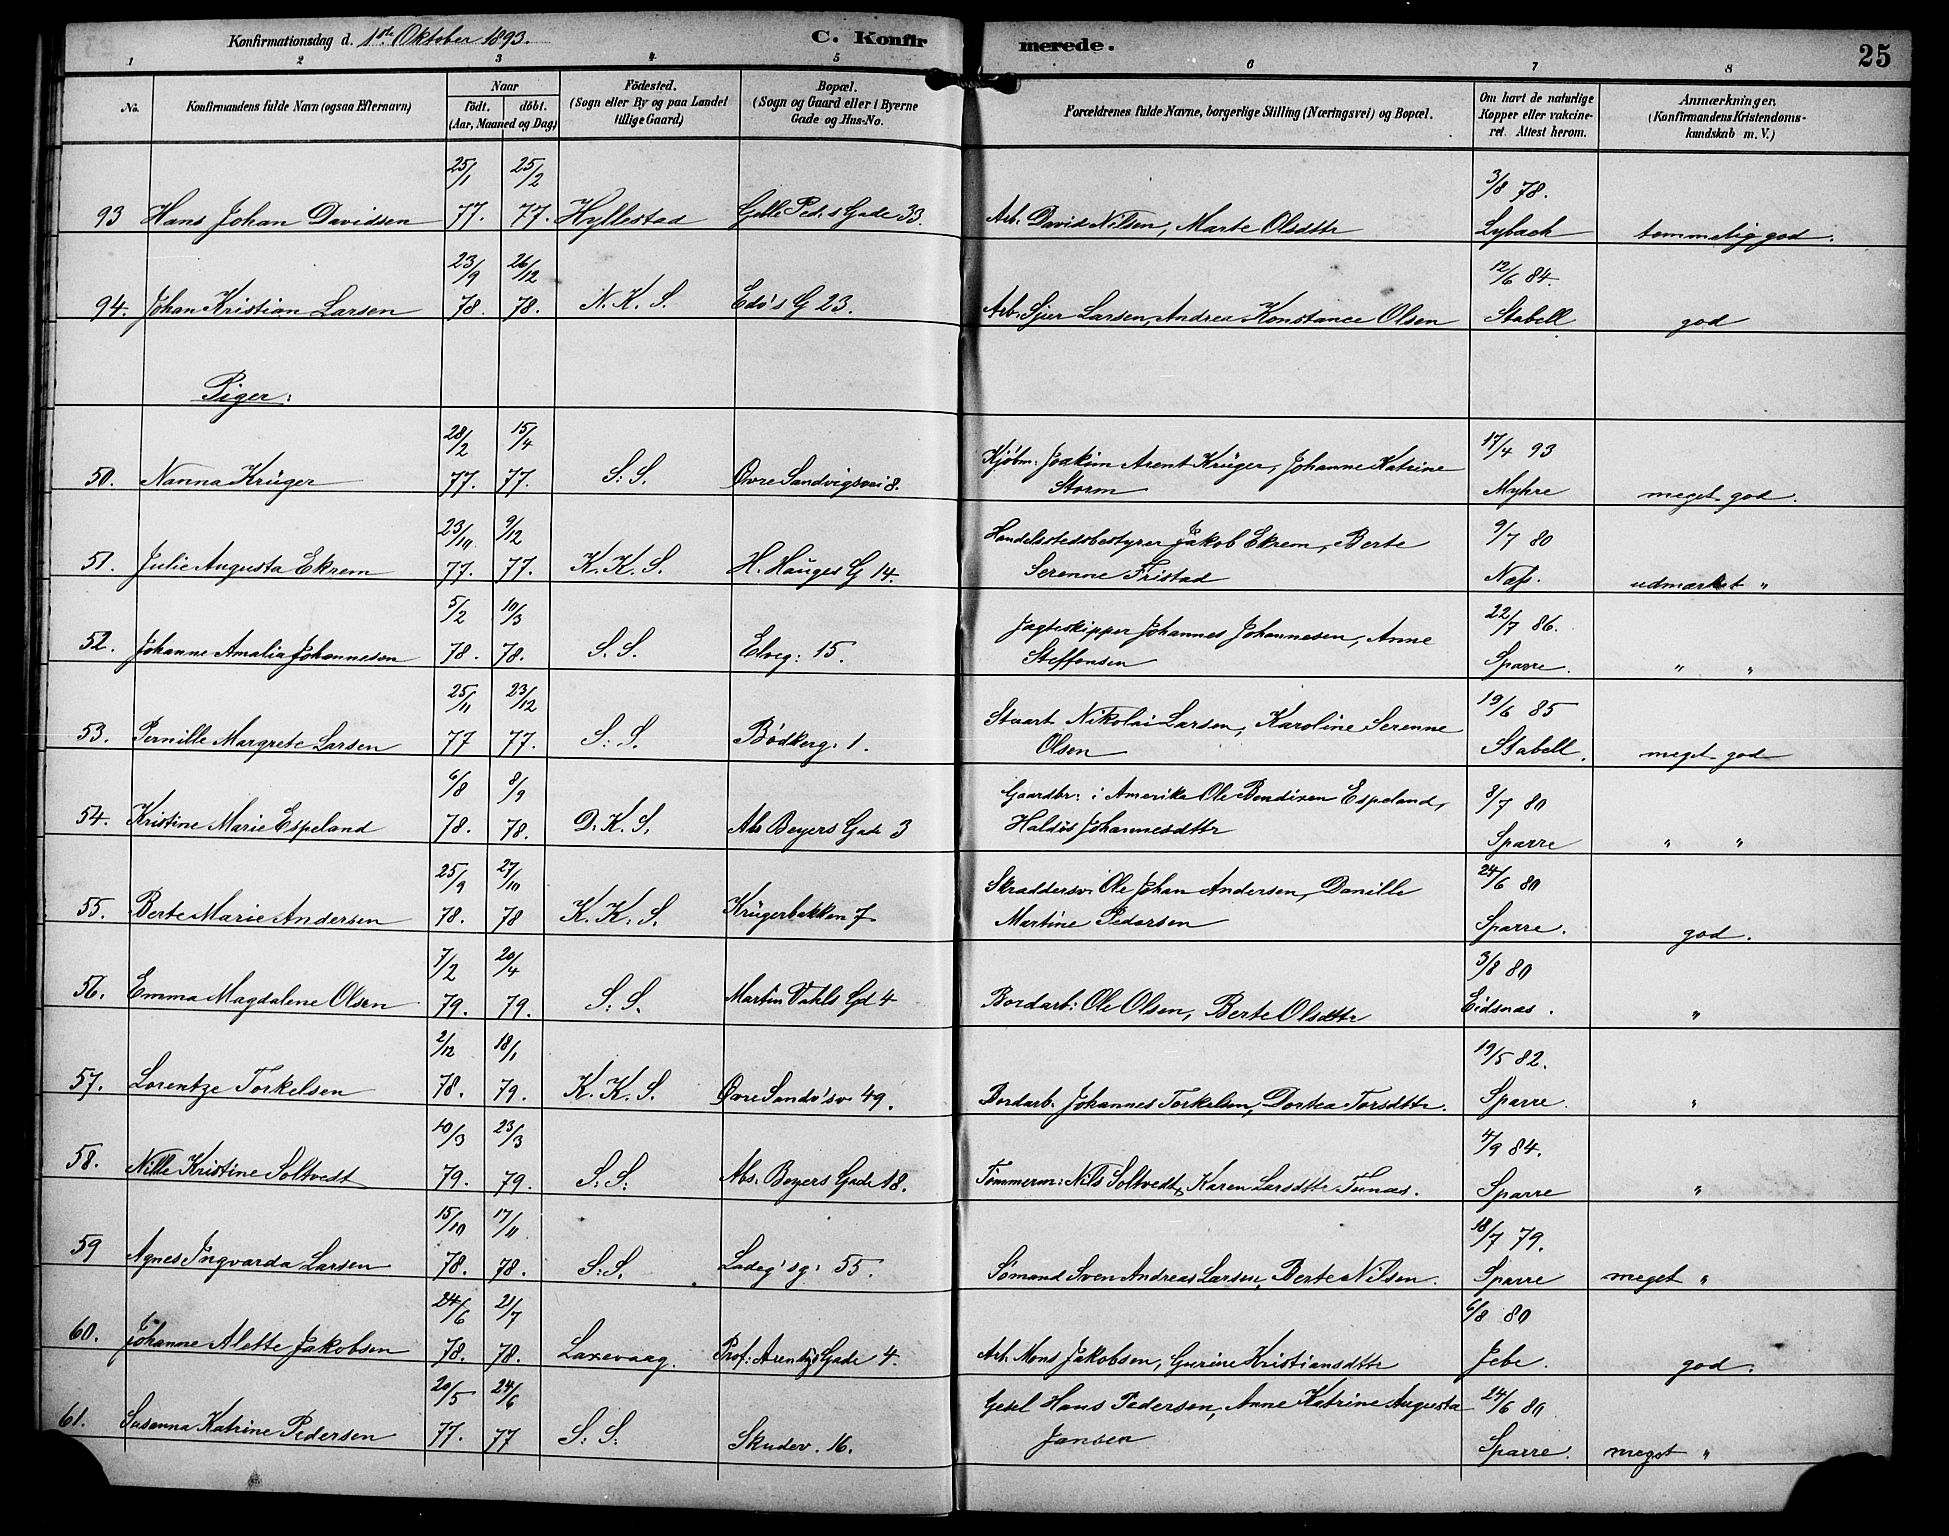 Konfirmationsdag d. 1ste Oktober 1893. C. Konfirmerede. 25
1 2 3 4 5 6 7 8
No. Konfirmandens fulde Navn (ogsaa Efternavn) Naar födt. döbt. (Aar, Maaned og Dag) Födested. (Sogn eller By og paa Landet tillige Gaard) Bopæl. (Sogn og Gaard eller i Byerne Gade og Hus-No. Forældrenes fulde Navne, borgerlige Stilling (Næringsvei) og Bopæl. Om havt de naturlige Kopper eller vakcineret. Attest herom. Anmærkninger, (Konfirmandens Kristendomskundskab m. V.)
25/1 25/2 3/8 78.
93 Hans Johan Davidsen 77. 77. Hyllestad Gelle Ped.s Gade 33. Arb. David Nilsen, Marte Olsdttr Lybach temmelig god.
23/9 26/12 12/6 84.
94. Johan Kristian Larsen 78. 78. N. K. S. Edv's G 23. Arb. Sjur Larsen, Andrea Konstance Olsen Stabell god
Piger:
28/2 15/4 Kjøbm: Joakim Arent Krüger, Johanne Katrine 17/4 93
50. Nanna Krüger 77. 77. S. S. Øvre Sandvigsvei 8. Storm Myhre meget god.
23/10 9/12 Handelsstedsbestyrer Jakob Ekrem, Berte 9/7 80
51. Julie Augusta Ekrem 77. 77. K. K. S. H. Hauges G 14. Serenne Fristad Næss. udmærket "
5/2 10/3 Jagteskipper Johannes Johannesen, Anne 22/7 86.
52. Johanne Amalia Johannesen 78. 78. S. S. Elveg: 15. Steffensen Sparre. " "
25/11 23/12 Stuart Nikolai Larsen, Karoline Serenne 19/6 85
53. Pernille Margrete Larsen 77 77. S: S. Bödkerg: 1. Olsen Stabell. meget god
6/8 8/9 Gaardbr: i Amerika Ole Bendixen Espeland, 8/7 80
54. Kristine Marie Espeland 78. 78. D. K. S. Abs Beyers Gade 3 Haldis Johannesdttr Sparre " "
25/9 27/10 Skraddersv. Ole Johan Andersen, Danille 24/6 80
55. Berte Marie Andersen 78. 78 K. K. S. Krügerbakken 7 Martine Pedersen Sparre. god.
7/2 20/4 3/8 80
56. Emma Magdalene Olsen 79. 79. S: S. Martin Vahls Gd 4 Bordarb: Ole Olsen, Berte Olsdttr Eidsnas. "
2/12 18/1 19/5 82.
57. Lorentze Torkelsen 78. 79. K. K. S. Øvre Sandv'sv 49. Bordarb. Johannes Torkelsen, Dortea Torsdttr. Sparre. "
10/3 23/3 4/9 84.
58. Nille Kristine Soltvedt 79. 79. S: S: Abs. Beyers Gade 18. Tömmerm: Nils Soltvedt, Karen Larsdttr Tunæs. Sparre "
15/10 17/11 18/7 79.
59 Agnes Ingvarda Larsen 78. 78. S: S. Ladeg'sg: 55. Sömand Sven Andreas Larsen, Berte Nilsen. Sparre meget "
24/6 21/7 6/8 80
60. Johanne Alette Jakobsen 78. 78. Laxevaag. Prof: Arentz's Gade 4. Arb. Mons Jakobsen, Gurine Kristiansdttr Jebe. god.
20/5 24/6 Gesel Hans Pedersen, Anne Katrine Augusta 24/6 80
61. Susanna Katrine Pedersen 77. 77 S: S: Skudev. 16. Jansen Sparre. meget "